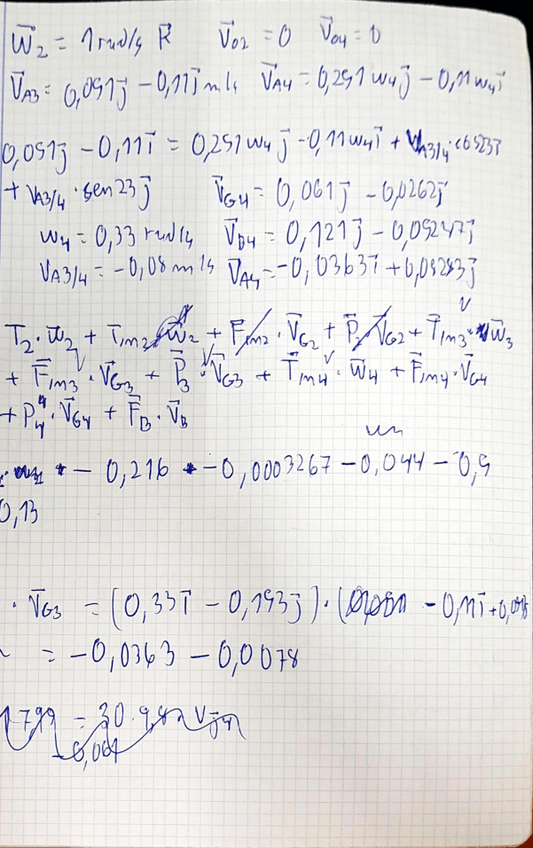 w⃗2 = 1 rad/s k⃗ V⃗02 = 0 V⃗04 = 0
V⃗A3 = 0,091j⃗ - 0,11i⃗ m/s V⃗A4 = 0,291 w4 j⃗ - 0,11 w4 i⃗
0,091j⃗ - 0,11i⃗ = 0,291 w4 j⃗ - 0,11 w4 i⃗ + VA3/4 · cos23i⃗
+ VA3/4 · sen23j⃗ V⃗G4 = 0,061j⃗ - 0,0262i⃗
w4 = 0,33 rad/s V⃗B4 = 0,121j⃗ - 0,0524i⃗
VA3/4 = -0,08 m/s V⃗A4 = -0,0363i⃗ + 0,0283j⃗
T⃗2 · w⃗2 + T⃗in2 w⃗2 + F⃗in2 · V⃗G2 + P⃗2 V⃗G2 + T⃗in3 · w⃗3
+ F⃗in3 · V⃗G3 + P⃗3 · V⃗G3 + T⃗in4 · w⃗4 + F⃗in4 · V⃗G4
+ P⃗4 · V⃗G4 + F⃗B · V⃗B
- 0,216 - 0,0003267 - 0,044 - 0,9
0,13
· V⃗G3 = (0,33i⃗ - 0,193j⃗) · ( - 0,11i⃗ +
= -0,0363 - 0,0078